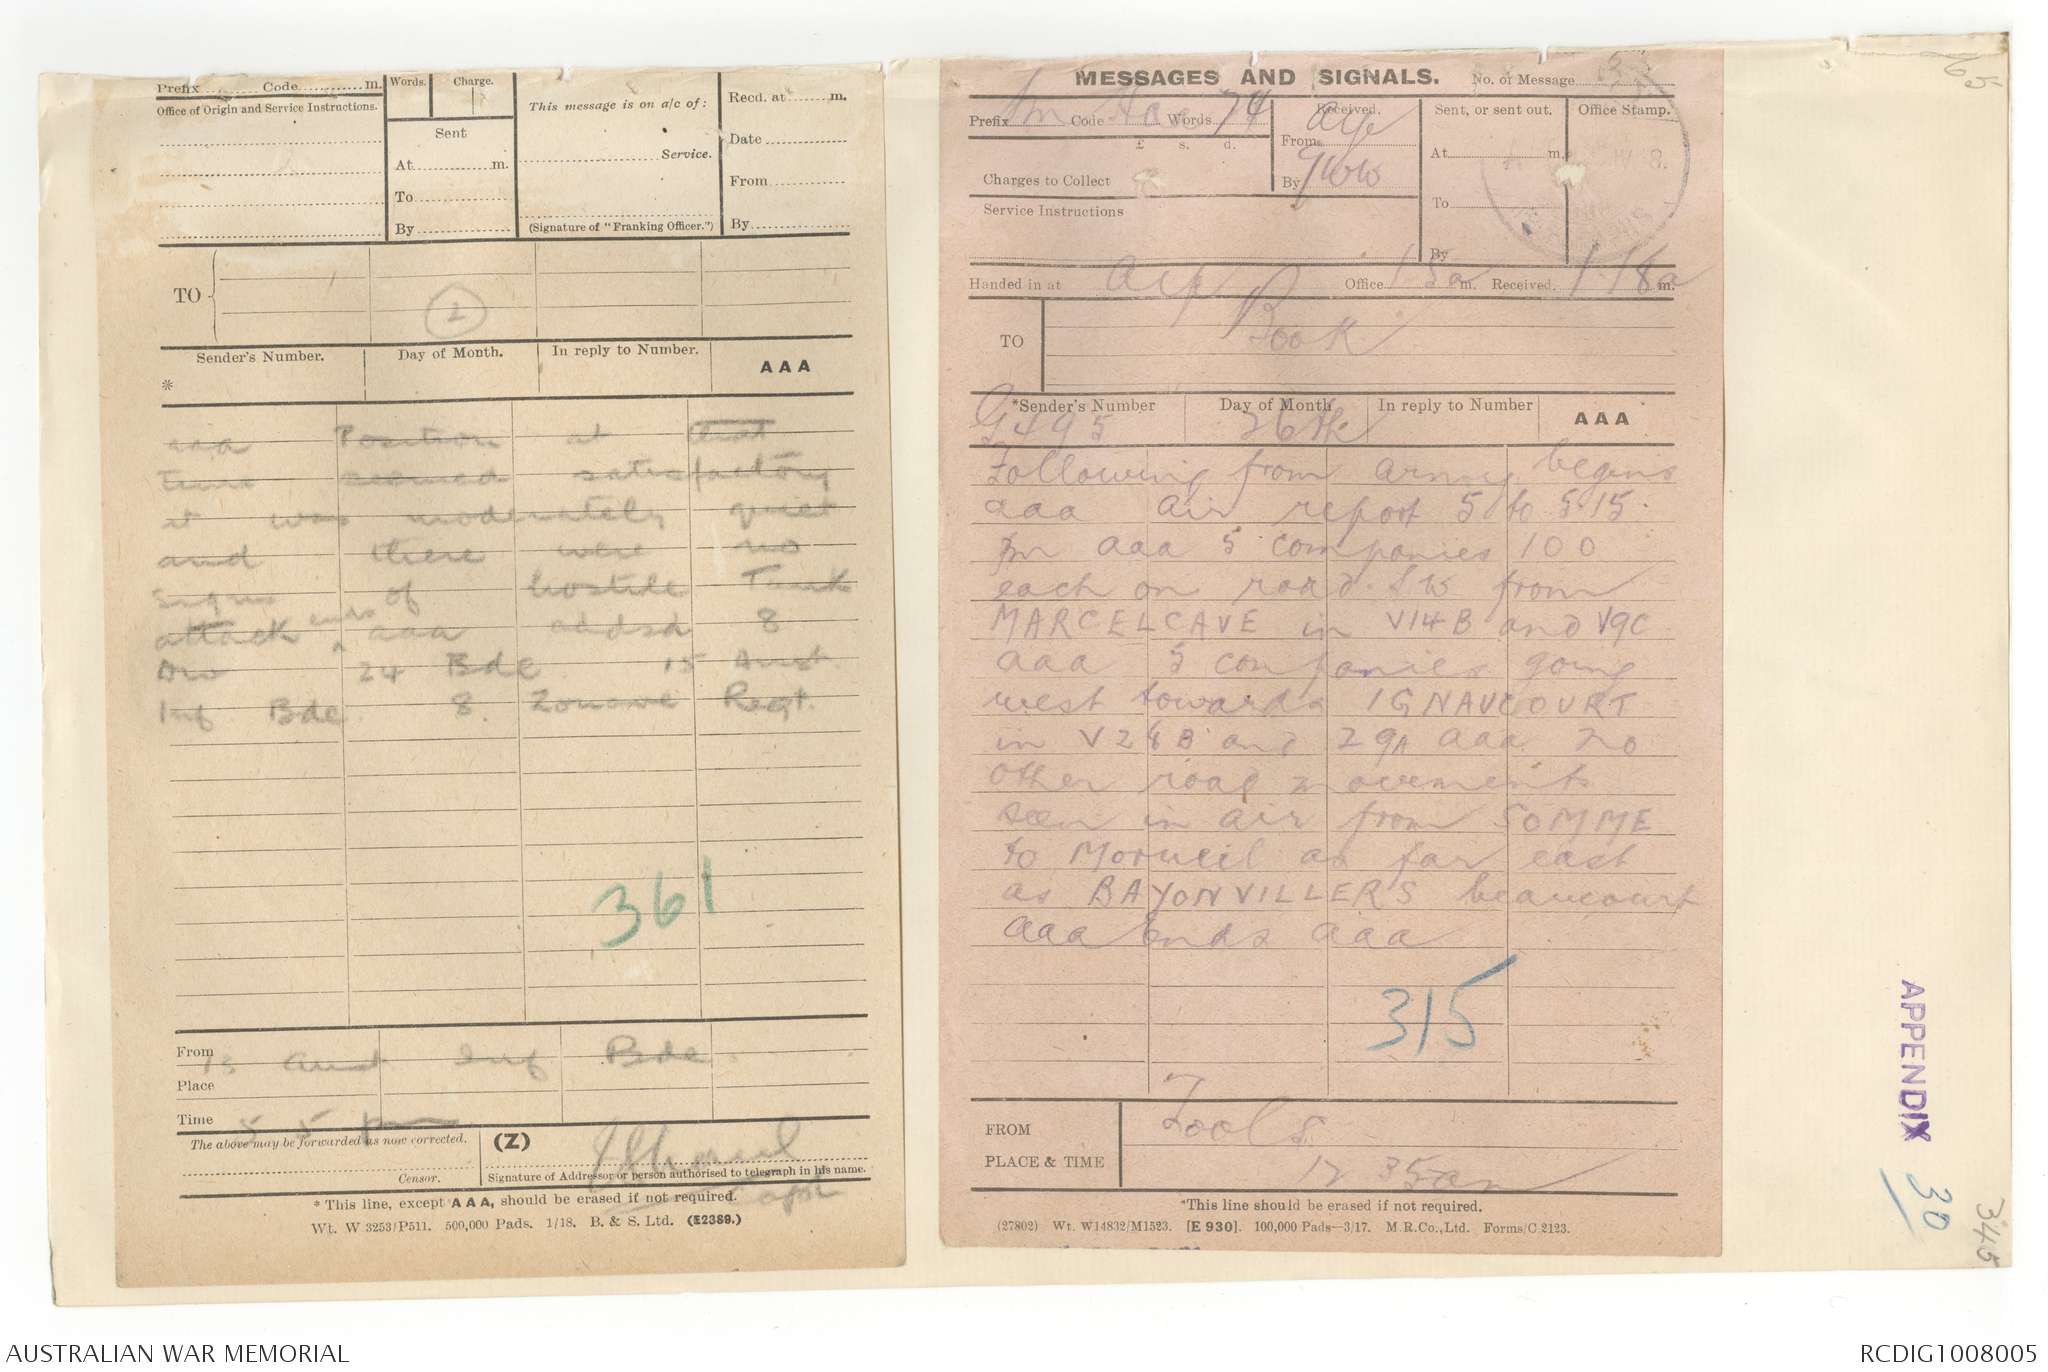 Prefix Code m.
Words.
Charge.
This message is on a/c of:
Recd. at m.
Office of Origin and Service Instructions.
Sent
Date
Service.
At m.
From
To
By
(Signature of "Franking Officer.")
By
TO
2
Sender's Number.
Day of Month.
In reply to Number.
AAA
*
aaa Position at that
time seemed satisfactory
it was moderately quiet
and there were no
signs of hostile Tank
attack ends aaa addsd 8
Div 24 Bde 15 Aust.
Inf Bde 8 Zouave Regt.
361
From 13 Aust Inf Bde
Place
Time 5 5 pm
The above may be forwarded as now corrected.
(Z)
Censor.
Signature of Addressor or person authorised to telegraph in his name.
Capt
* This line, except AAA, should be erased if not required.
Wt. W 3253/P511. 500,000 Pads. 1/18. B. & S. Ltd. (E2389.)
MESSAGES AND SIGNALS.
No. of Message
Prefix Sm Code Words 74
Received.
Sent, or sent out.
Office Stamp.
£ s. d.
From
At m.
Charges to Collect
By
To
Service Instructions
By
Handed in at Office m. Received. 1 18a m.
TO Book
*Sender's Number
Day of Month
In reply to Number
AAA
G495 26th
Following from army begins
aaa air report 5 to 5.15
pm aaa 5 companies 100
each on road SW from
MARCELCAVE in V14B and V9C
aaa 5 companies going
west towards IGNAUCOURT
in V28B and 29A aaa no
other road movements
seen in air from SOMME
to Morueil as far east
as BAYONVILLERS beaucourt
aaa ends aaa
315
FROM Fools
PLACE & TIME 12 35am
*This line should be erased if not required.
(27802) Wt. W14832/M1523. [E 930]. 100,000 Pads—3/17. M.R.Co., Ltd. Forms/C.2123.
APPENDIX
30
345
AUSTRALIAN WAR MEMORIAL
RCDIG1008005